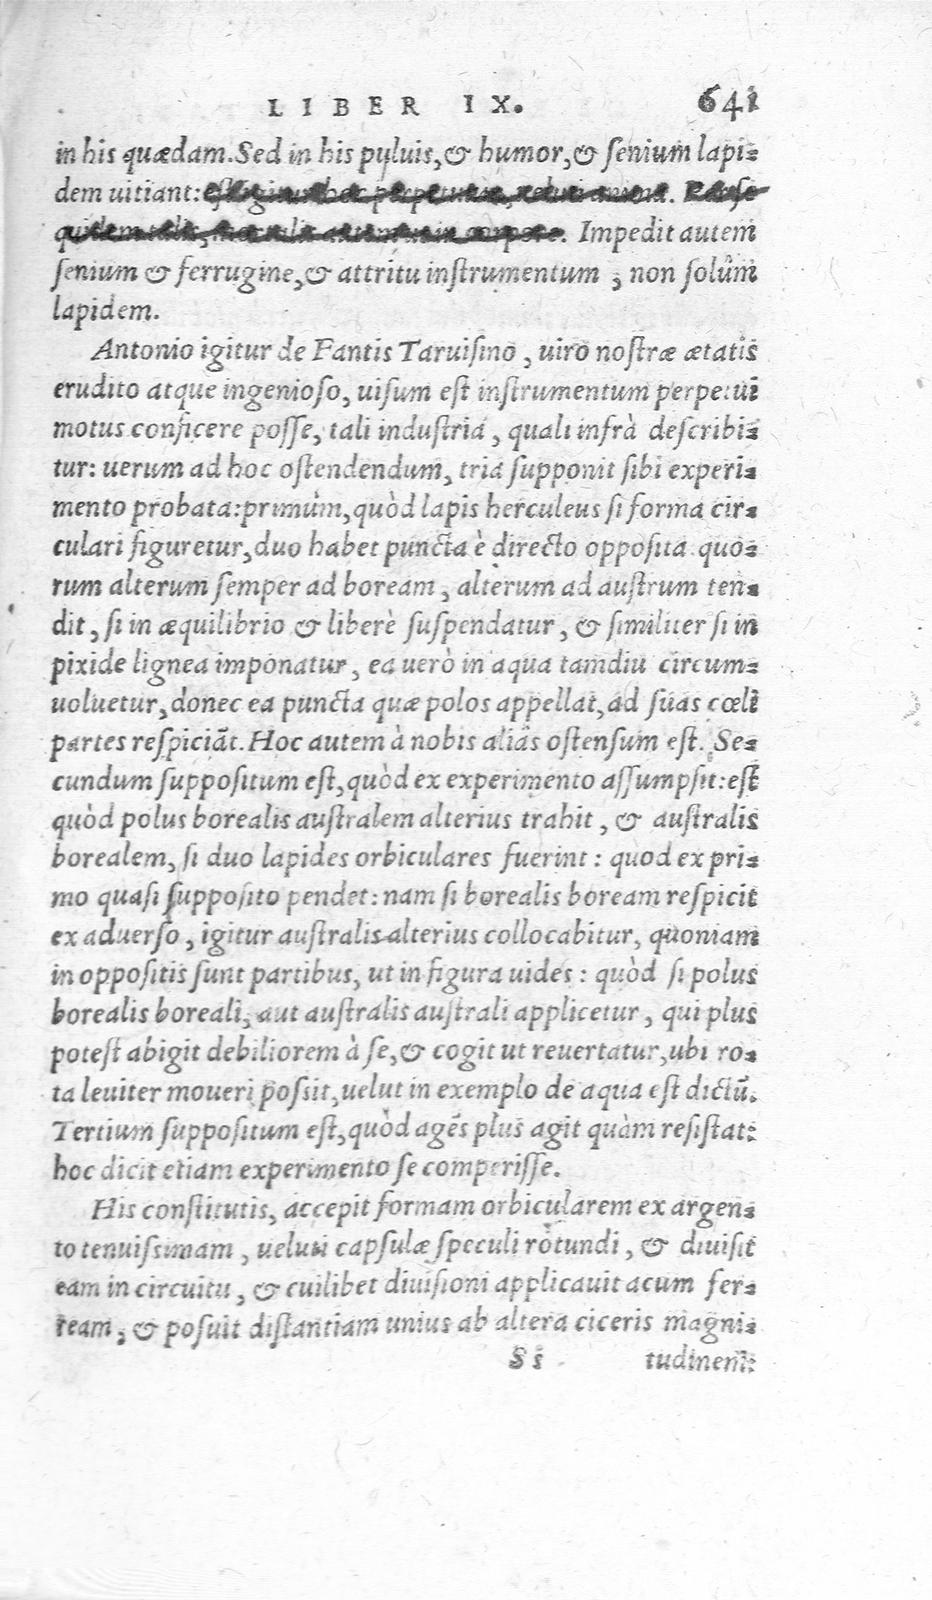 LIBER IX. 641
in his quædam. Sed in his puluis, & humor, & ſenium lapi-
dem uitiant: eſt igitur hoc perpetuum, ueluti anima.
quidem talis, autem in corpore. Impedit autem
ſenium & ferrugine, & attritu inſtrumentum, non ſolùm
lapidem.
Antonio igitur de Fantis Taruiſino, uiro noſtræ ætatis
erudito atque ingenioſo, uiſum eſt inſtrumentum perpetui
motus conficere poſſe, tali induſtria, quali infrà deſcribi-
tur: uerum ad hoc oſtendendum, tria ſupponit ſibi experi-
mento probata: primùm, quòd lapis herculeus ſi forma cir-
culari figuretur, duo habet puncta è directo oppoſita quo-
rum alterum ſemper ad boream, alterum ad auſtrum ten-
dit, ſi in æquilibrio & liberè ſuſpendatur, & ſimiliter ſi in
pixide lignea imponatur, ea uerò in aqua tamdiu circum-
uoluetur, donec ea puncta quæ polos appellat, ad ſuas cœli
partes reſpiciāt. Hoc autem à nobis aliâs oſtenſum eſt. Se-
cundum ſuppoſitum eſt, quòd ex experimento aſſumpſit: eſt
quòd polus borealis auſtralem alterius trahit, & auſtralis
borealem, ſi duo lapides orbiculares fuerint: quod ex pri-
mo quaſi ſuppoſito pendet: nam ſi borealis boream reſpicit
ex aduerſo, igitur auſtralis alterius collocabitur, quoniam
in oppoſitis ſunt partibus, ut in figura uides: quòd ſi polus
borealis boreali, aut auſtralis auſtrali applicetur, qui plus
poteſt abigit debiliorem à ſe, & cogit ut reuertatur, ubi ro-
ta leuiter moueri poſsit, uelut in exemplo de aqua eſt dictū.
Tertium ſuppoſitum eſt, quòd agēs plus agit quàm reſiſtat:
hoc dicit etiam experimento ſe comperiſſe.
His conſtitutis, accepit formam orbicularem ex argen-
to tenuiſsimam, ueluti capſulæ ſpeculi rotundi, & diuiſit
eam in circuitu, & cuilibet diuiſioni applicauit acum fer-
ream, & poſuit diſtantiam unius ab altera ciceris magni-
S s tudinem: